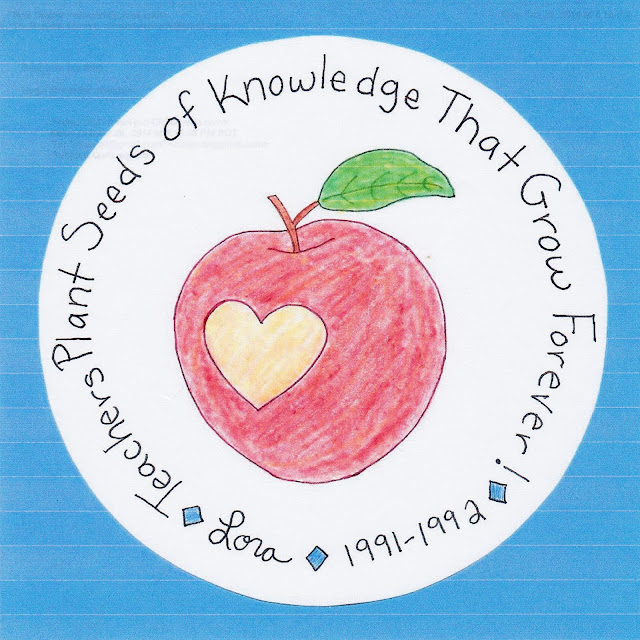 Teachers Plant Seeds of Knowledge That Grow Forever!
Lora
1991-1992